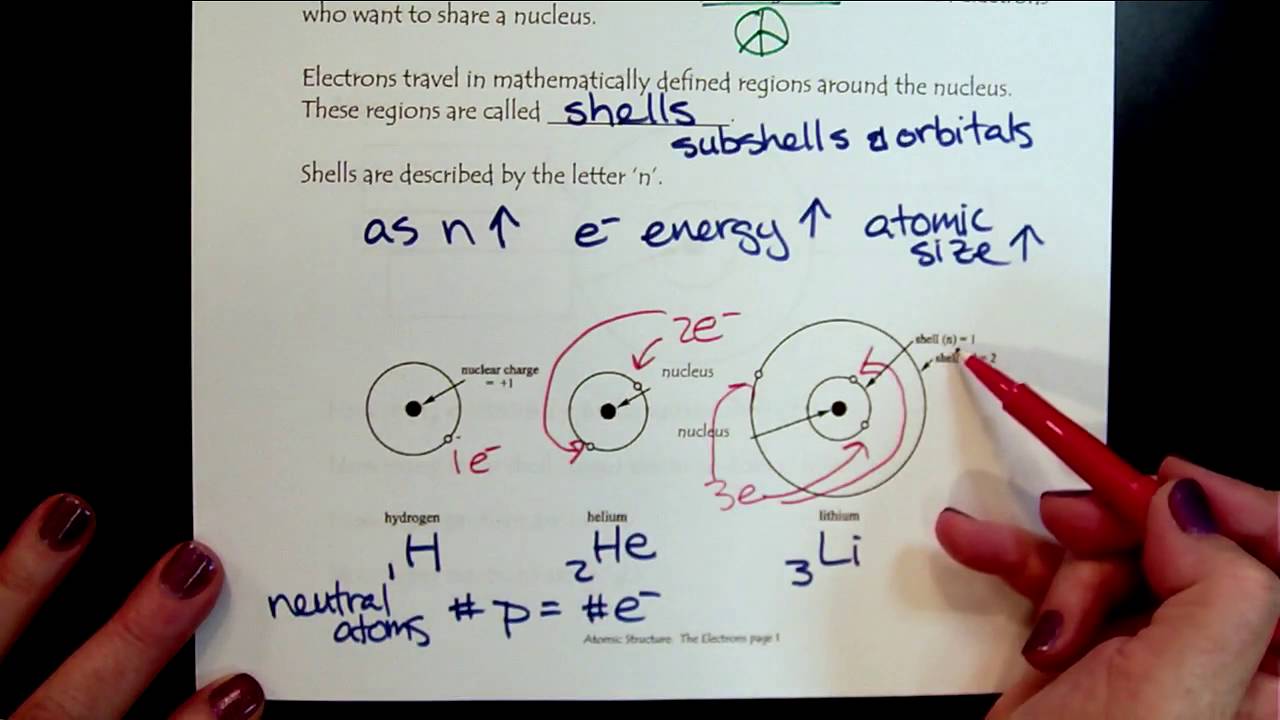 who want to share a nucleus.
Electrons travel in mathematically defined regions around the nucleus.
These regions are called shells.
subshells & orbitals
Shells are described by the letter 'n'.
as n ↑ e⁻ energy ↑ atomic size ↑
2e⁻
nuclear charge
= +1
nucleus
shell (n) = 1
= 2
nucleus
1e⁻
3e⁻
hydrogen helium lithium
₁H ₂He ₃Li
neutral atoms # p = # e⁻
Atomic Structure The Electrons page 1